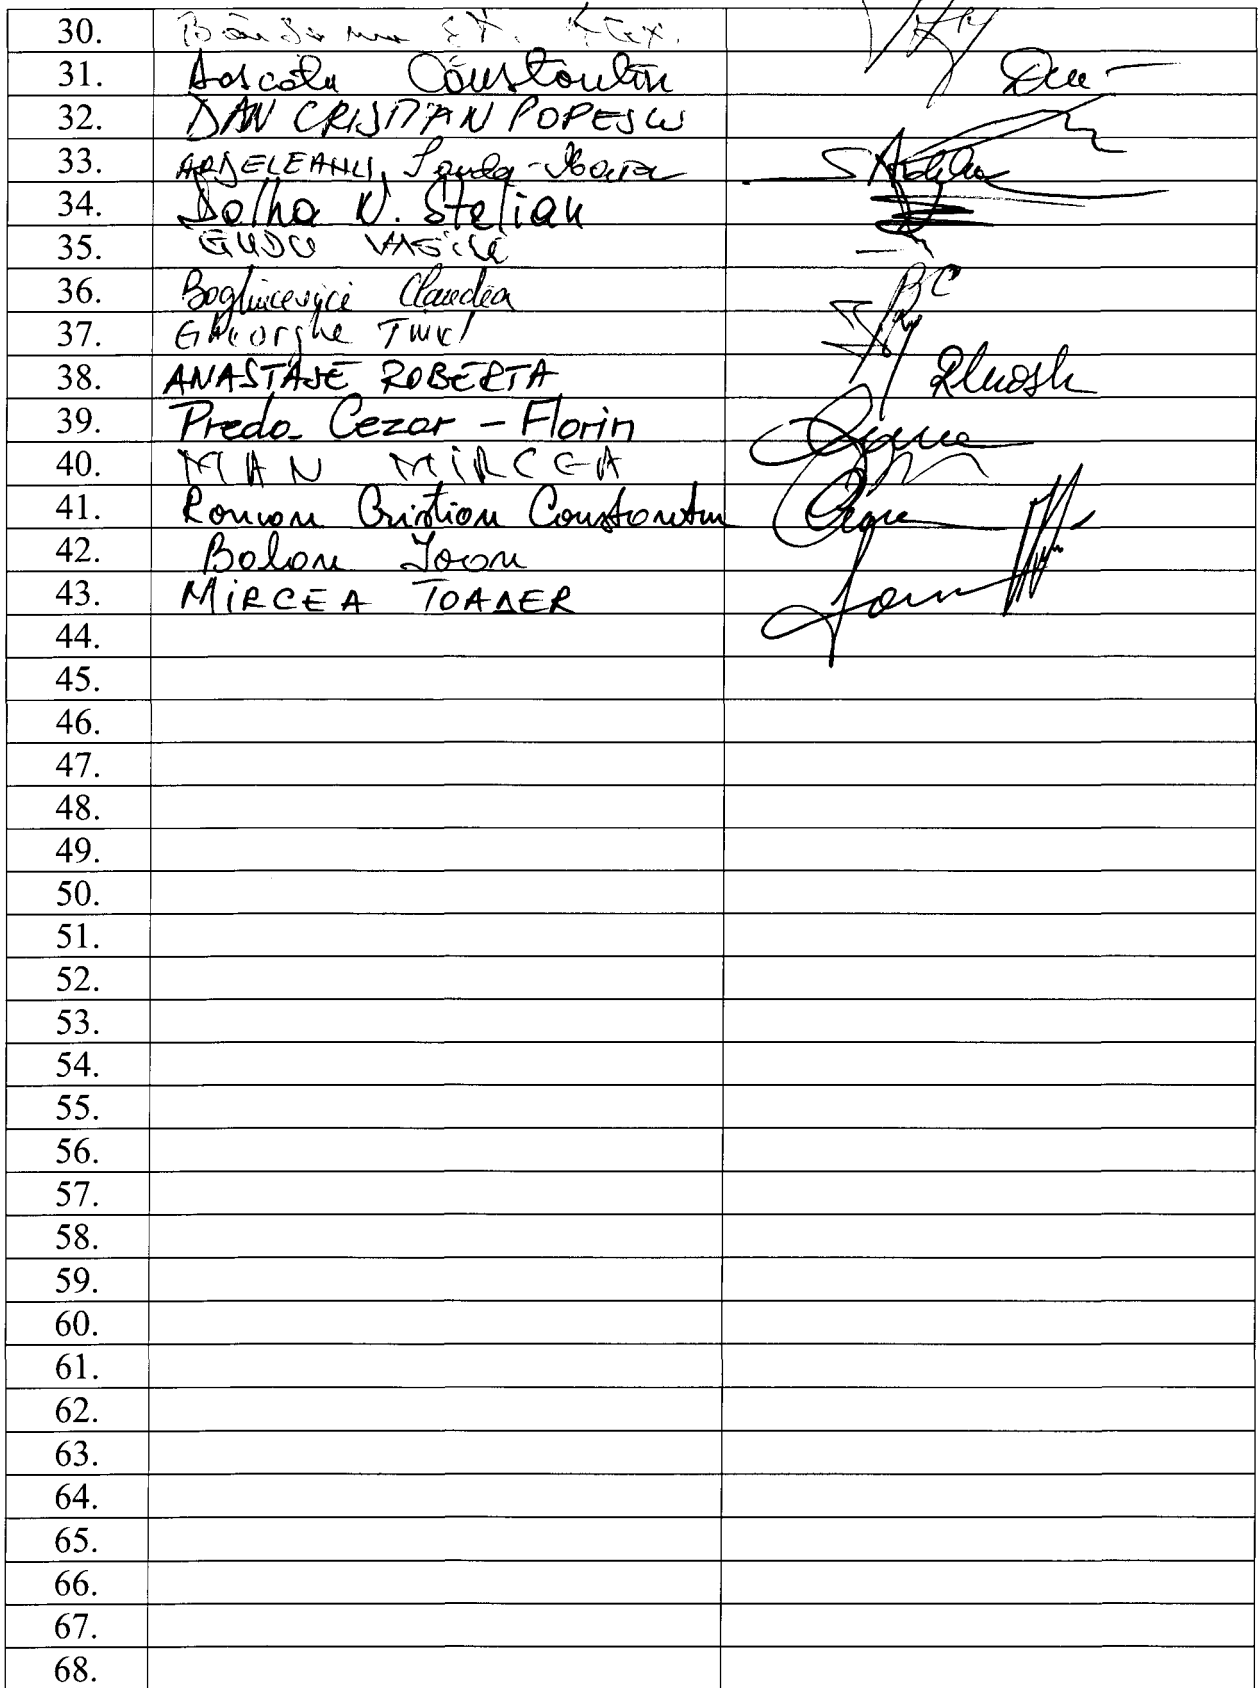 30.
31. Dascălu Constantin
32. DAN CRISTIAN POPESCU
33. ARDELEANU, Sanda-Maria
34. Dolha N. Stelian
35. GUDU VASILE
36. Boghicevici Claudia
37. Gheorghe TINEL
38. ANASTASE ROBERTA
39. Preda Cezar - Florin
40. MAN MIRCEA
41. Roman Cristian Constantin
42. Balan Ioan
43. MIRCEA TOADER
44.
45.
46.
47.
48.
49.
50.
51.
52.
53.
54.
55.
56.
57.
58.
59.
60.
61.
62.
63.
64.
65.
66.
67.
68.